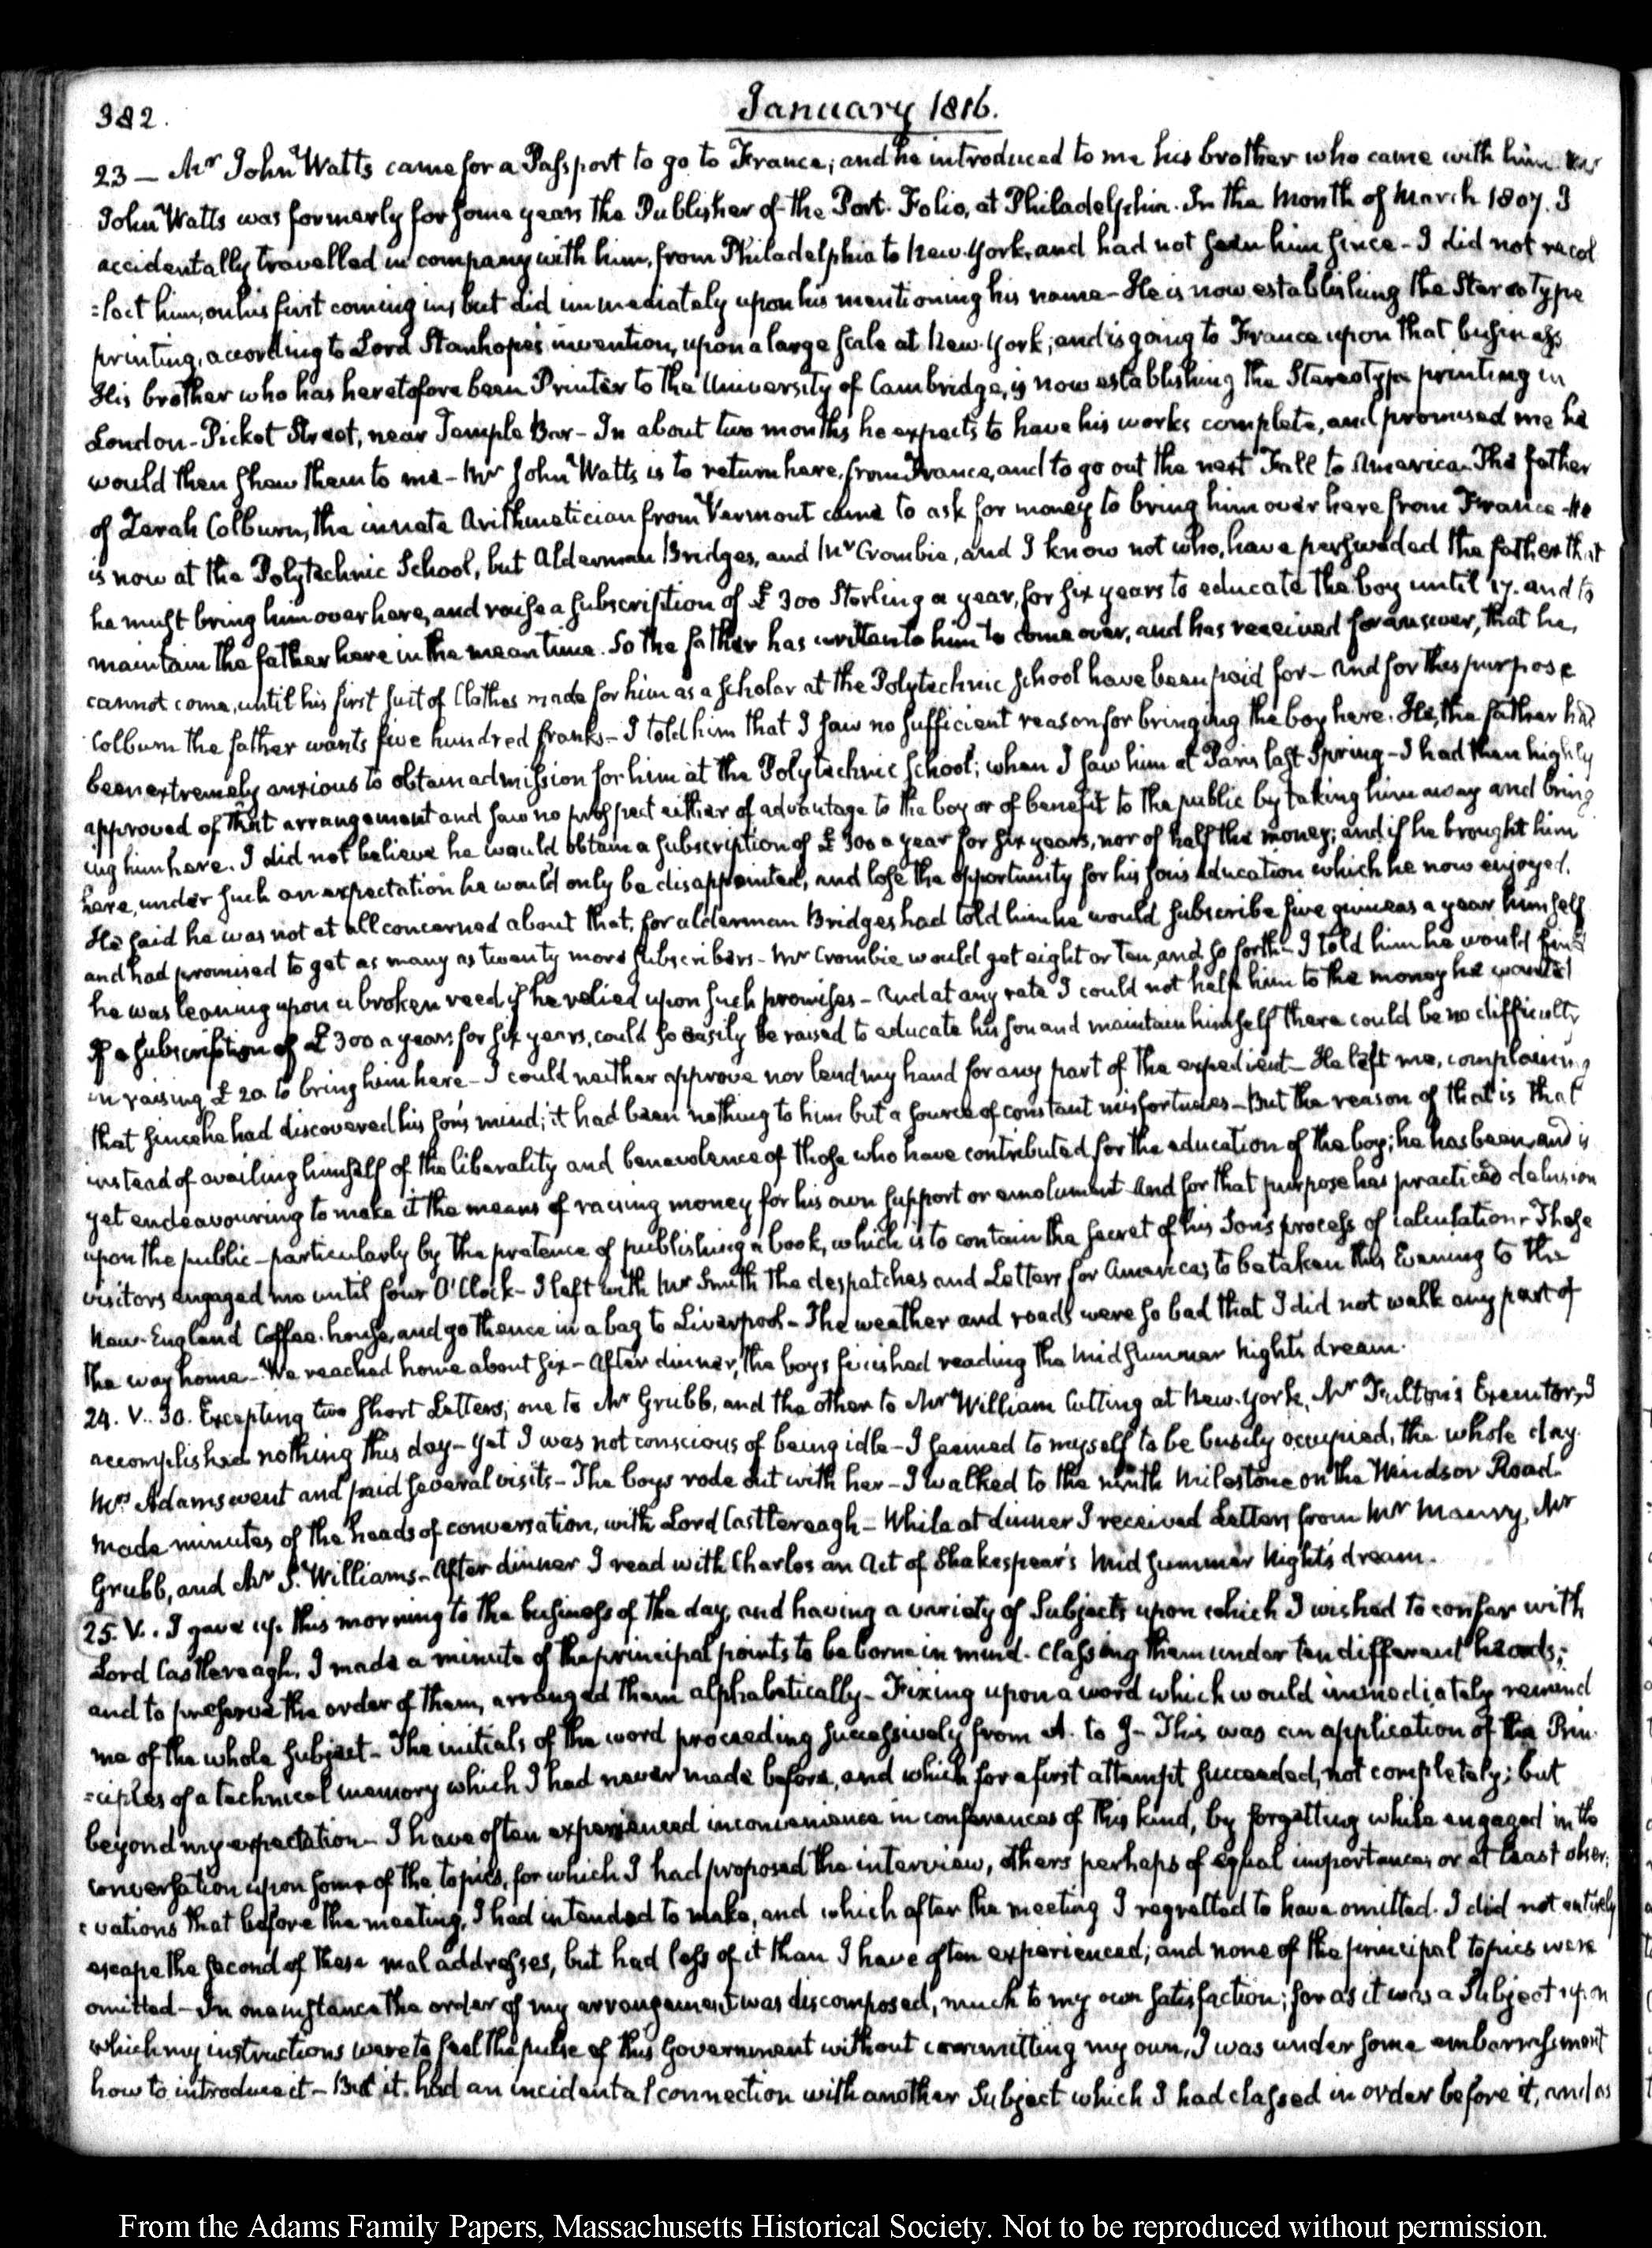 382.
January 1816.
23 — Mr John Watts came for a Passport to go to France; and he introduced to me his brother who came with him. Mr
John Watts was formerly for some years the Publisher of the Port. Folio, at Philadelphia. In the Month of March 1807. I
accidentally travelled in company with him, from Philadelphia to New-York, and had not seen him since - I did not recol
=lect him, on his first coming in; but did immediately upon his mentioning his name - He is now establishing the Stereotype
printing, according to Lord Stanhope's invention, upon a large scale at New-York; and is going to France upon that business
His brother who has heretofore been Printer to the University of Cambridge, is now establishing the Stereotype printing in
London - Picket Street, near Temple Bar - In about two months he expects to have his works complete, and promised me he
would then shew them to me - Mr John Watts is to return here, from France, and to go out the next Fall to America. The father
of Zerah Colburn, the innate Arithmetician from Vermont came to ask for money to bring him over here from France - He
is now at the Polytechnic School, but Alderman Bridges, and Mr Crombie, and I know not who, have persuaded the father that
he must bring him over here, and raise a subscription of £300 Sterling a year, for six years to educate the boy until 17. and to
maintain the father here in the mean time. So the father has written to him to come over, and has received for answer, that he,
cannot come, until his first suit of Clothes made for him as a scholar at the Polytechnic School have been paid for - And for this purpose
Colburn the father wants five hundred franks - I told him that I saw no sufficient reason for bringing the boy here. He, the father had
been extremely anxious to obtain admission for him at the Polytechnic School; when I saw him at Paris last Spring - I had then highly
approved of that arrangement and saw no prospect either of advantage to the boy or of benefit to the public by taking him away and bring
ing him here. I did not believe he would obtain a subscription of £300 a year for six years, nor of half the money; and if he brought him
here, under such an expectation he would only be disappointed, and lose the opportunity for his son's education which he now enjoyed.
He said he was not at all concerned about that, for alderman Bridges had told him he would subscribe five guineas a year himself
and had promised to get as many as twenty more subscribers - Mr Crombie would get eight or ten, and so forth - I told him he would find
he was leaning upon a broken reed if he relied upon such promises - And at any rate I could not help him to the money he wanted
If a subscription of £300 a years for six years, could so easily be raised to educate his son and maintain himself there could be no difficulty
in raising £20. to bring him here - I could neither approve nor lend my hand for any part of the expedient - He left me, complaining
that since he had discovered his son's mind; it had been nothing to him but a source of constant misfortunes - But the reason of that is that
instead of availing himself of the liberality and benevolence of those who have contributed for the education of the boy; he has been, and is
yet endeavouring to make it the means of racing money for his own support or emolument - and for that purpose has practiced delusion
upon the public - particularly by the pretence of publishing a book, which is to contain the secret of his Son's process of calculation - These
visitors engaged me until four O'Clock - I left with Mr Smith the despatches and Letters for America, to be taken this Evening to the
New-England Coffee-house, and go thence in a bag to Liverpool - The weather and roads were so bad that I did not walk any part of
the way home - We reached home about six - After dinner, the boys finished reading the Midsummer Nights dream.
24. V.. 30. Excepting two short Letters; one to Mr Grubb, and the other to Mr William Cutting at New-York, Mr Fulton's Executor, I
accomplished nothing this day - yet I was not conscious of being idle - I seemed to myself to be busily occupied, the whole day.
Mrs Adams went and paid several visits - The boys rode out with her - I walked to the ninth Milestone on the Windsor Road.
Made minutes of the heads of conversation, with Lord Castlereagh - While at dinner I received Letters from Mr Maury, Mr
Grubb, and Mr S. Williams - After dinner I read with Charles an Act of Shakespear's Midsummer Night's dream.
25. V.. I gave up this morning to the business of the day, and having a variety of Subjects upon which I wished to confer with
Lord Castlereagh, I made a minute of the principal points to be borne in mind. Classing them under ten different heads;
and to preserve the order of them, arranged them alphabetically - Fixing upon a word which would immediately remind
me of the whole subject - The initials of the word proceeding successively from A. to J - This was an application of the Prin
=ciples of a technical memory which I had never made before, and which for a first attempt succeeded, not completely; but
beyond my expectation - I have often experienced inconvenience in conferences of this kind, by forgetting while engaged in the
conversation upon some of the topics, for which I had proposed the interview, others perhaps of equal importance; or at least obser
=vations that before the meeting, I had intended to make, and which after the meeting I regretted to have omitted. I did not entirely
escape the second of these mal addresses, but had less of it than I have often experienced; and none of the principal topics were
omitted - In one instance the order of my arrangement was discomposed, much to my own satisfaction; for as it was a Subject upon
which my instructions were to feel the pulse of this Government without committing my own, I was under some embarrassment
how to introduce it - But it had an incidental connection with another Subject which I had classed in order before it, and as
From the Adams Family Papers, Massachusetts Historical Society. Not to be reproduced without permission.